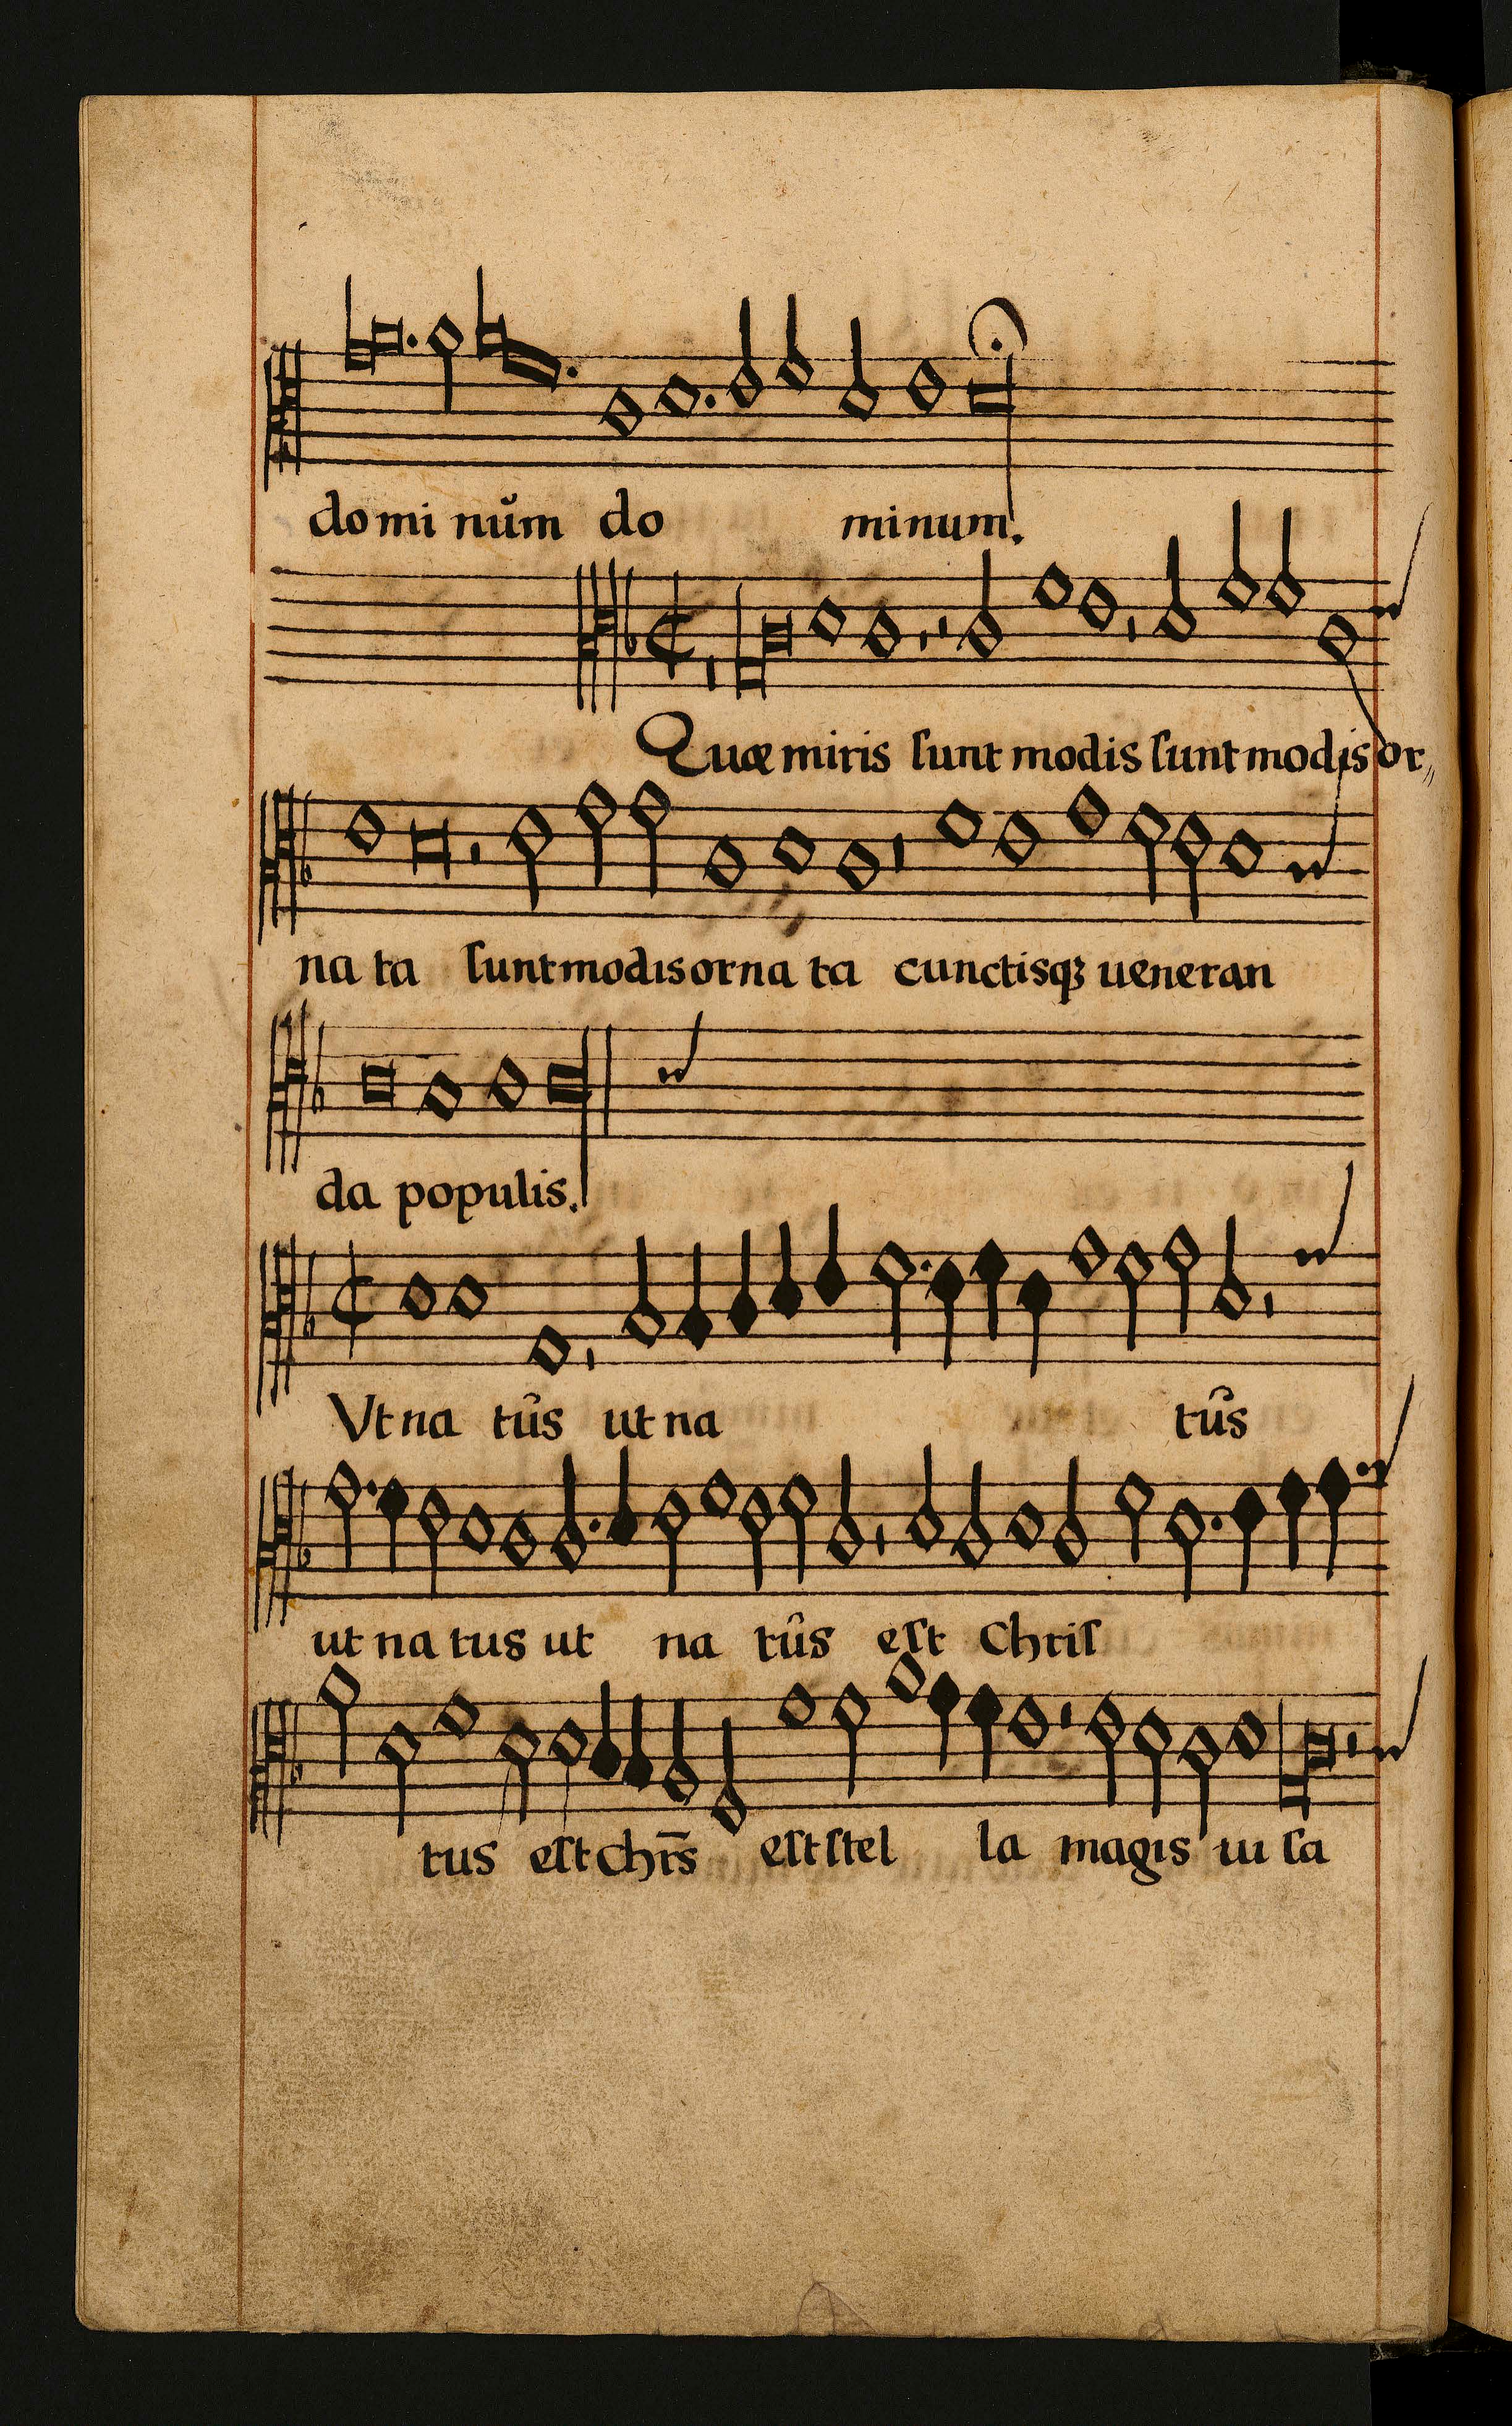 do mi nũm do minum.
Quæ miris ſunt modis ſunt modis or„
na ta ſunt modis orna ta cunctisqꝫ ueneran
da populis.
Vt na tûs ut na tûs
ut na tus ut na tûs eſt Chriſ
tus eſt Chr̄s eſt ſtel la magis ui ſa